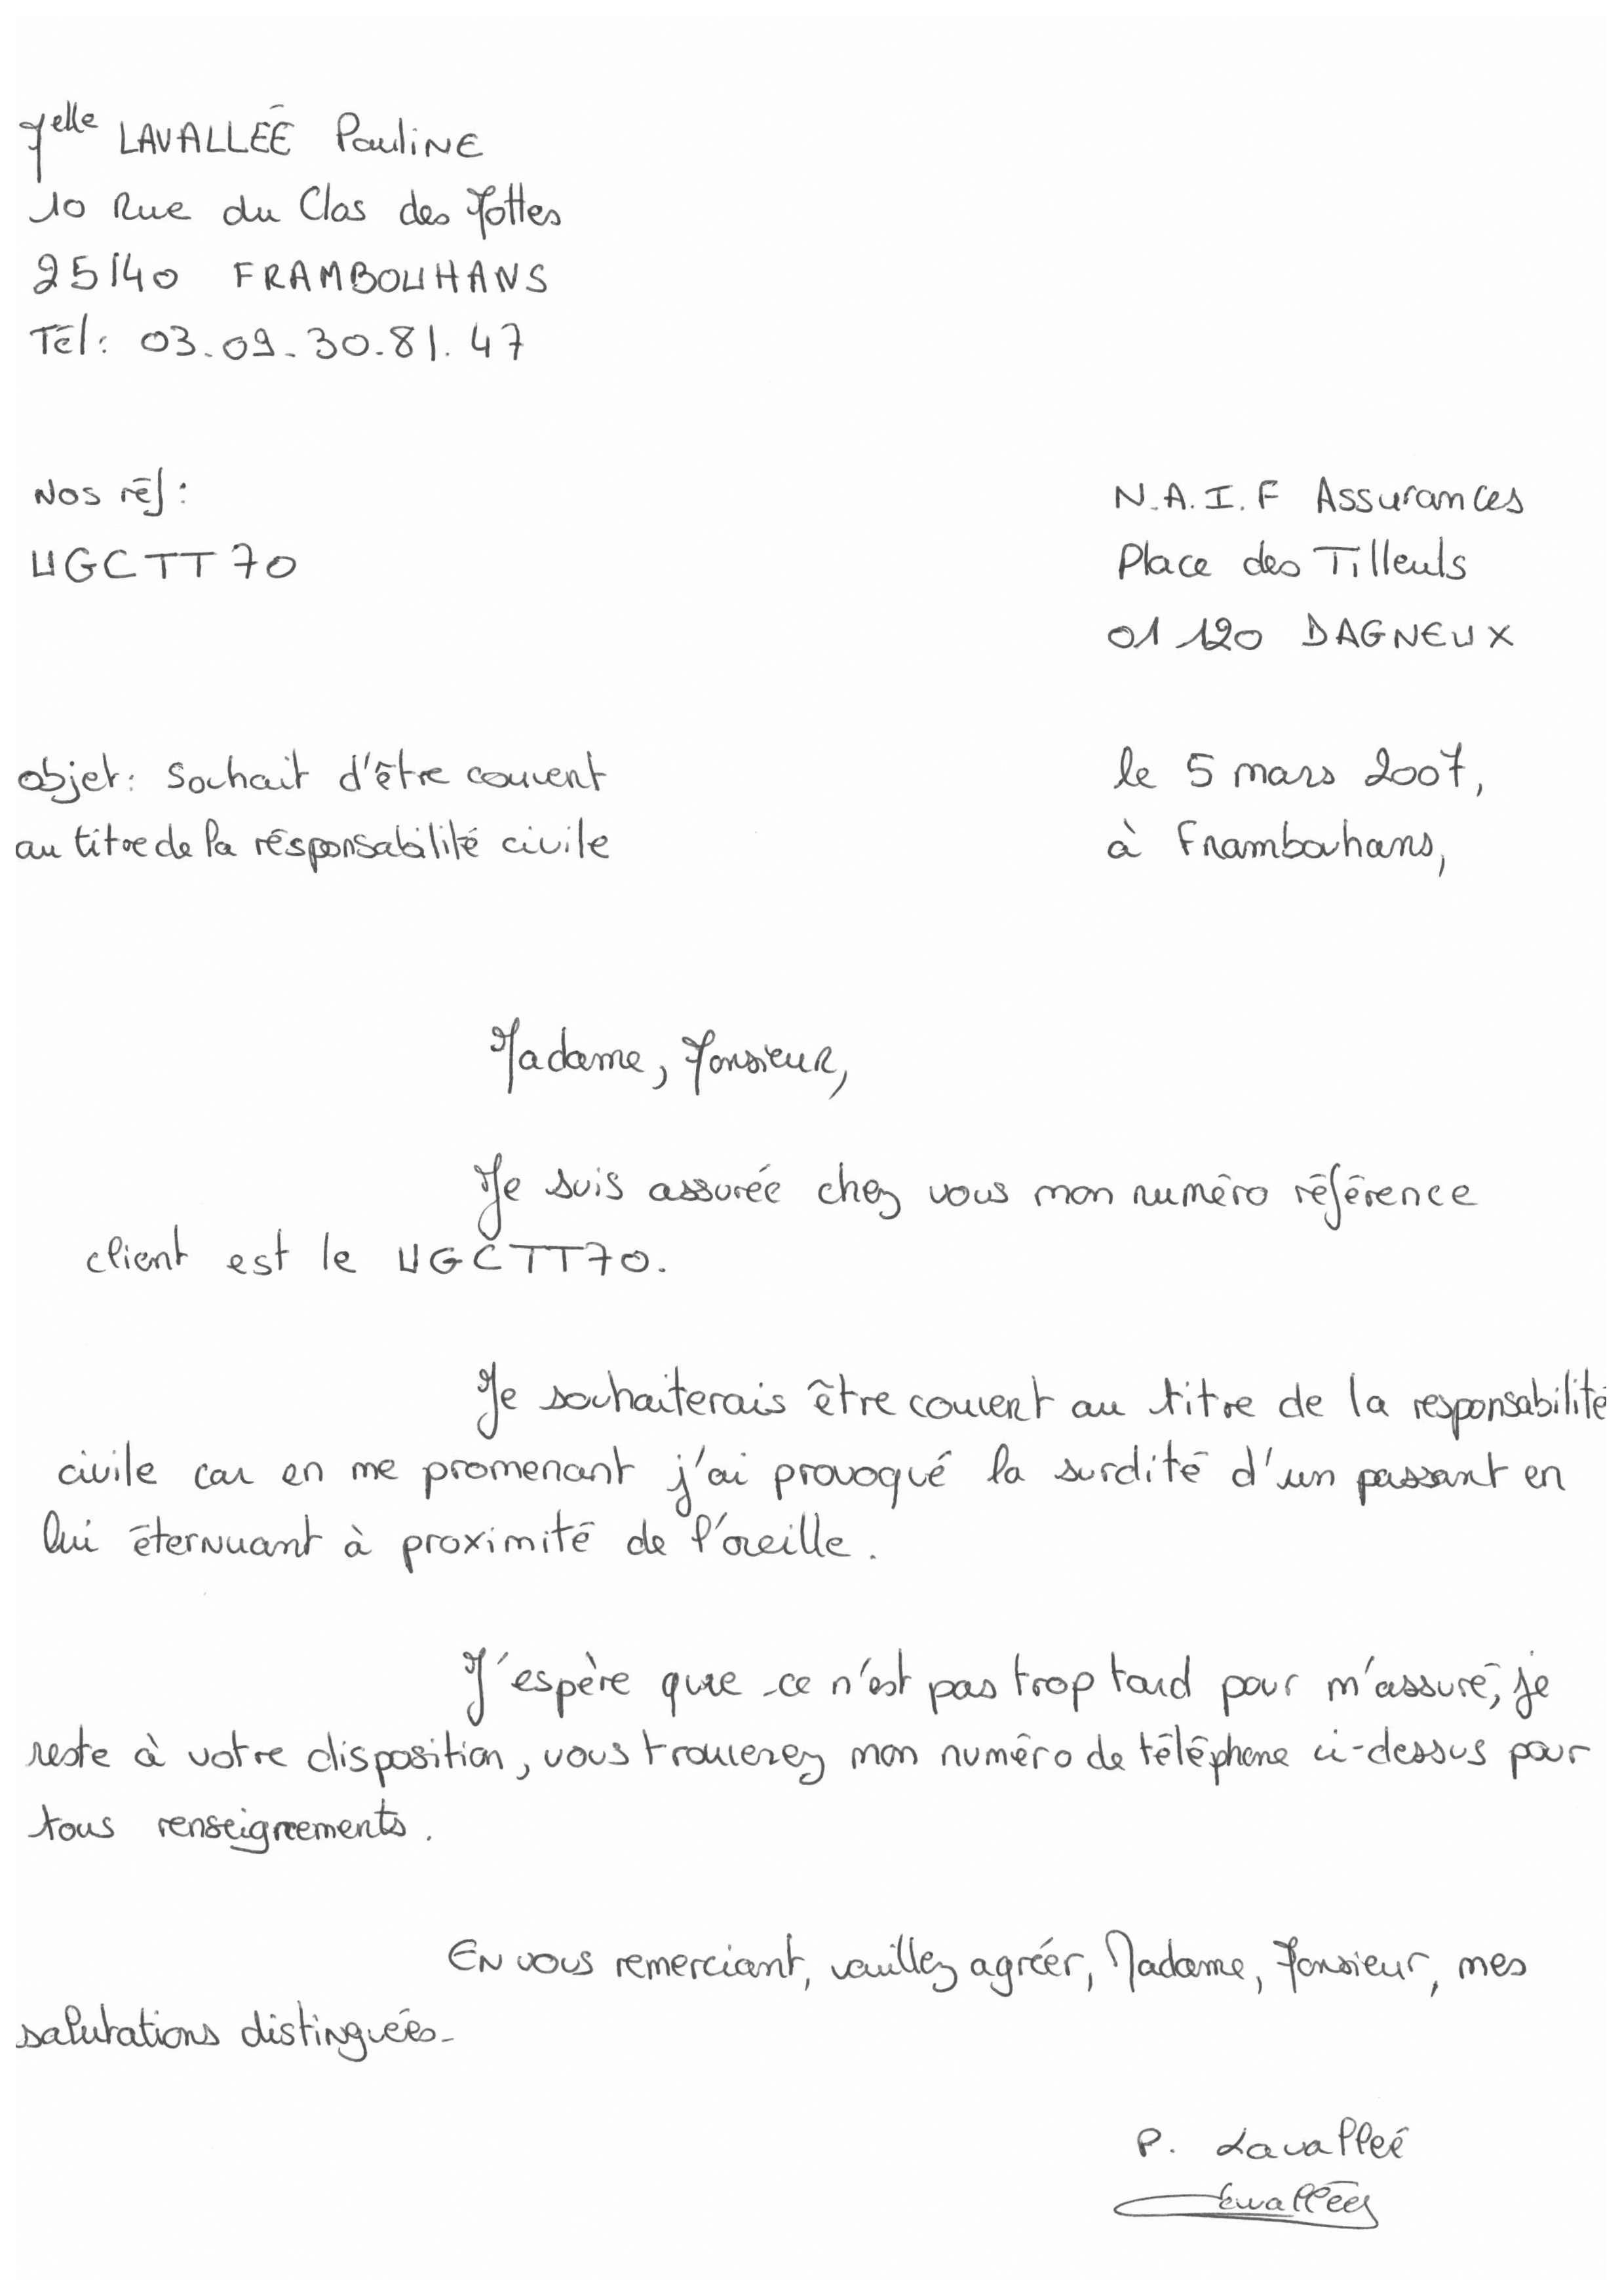 Melle LAVALLÉE Pauline
10 Rue du Clos des Mottes
25140 FRAMBOUHANS
Tél: 03.09.30.81.47
Nos réf:
UGCTT70
N.A.I.F Assurances
Place des Tilleuls
01120 DAGNEUX
objet: Souhait d'être couvert
au titre de la résponsabilité civile
le 5 mars 2007,
à Frambouhans,
Madame, Monsieur,
Je suis assurée chez vous mon numéro référence
client est le UGCTT70.
Je souhaiterais être couvert au titre de la responsabilité
civile car en me promenant j'ai provoqué la surdité d'un passant en
lui éternuant à proximité de l'oreille.
J'espère que ce n'est pas trop tard pour m'assuré, je
reste à votre disposition, vous trouverez mon numéro de téléphone ci-dessus pour
tous renseignements.
En vous remerciant, veuillez agréer, Madame, Monsieur, mes
salutations distinguées.
P. Lavalleé